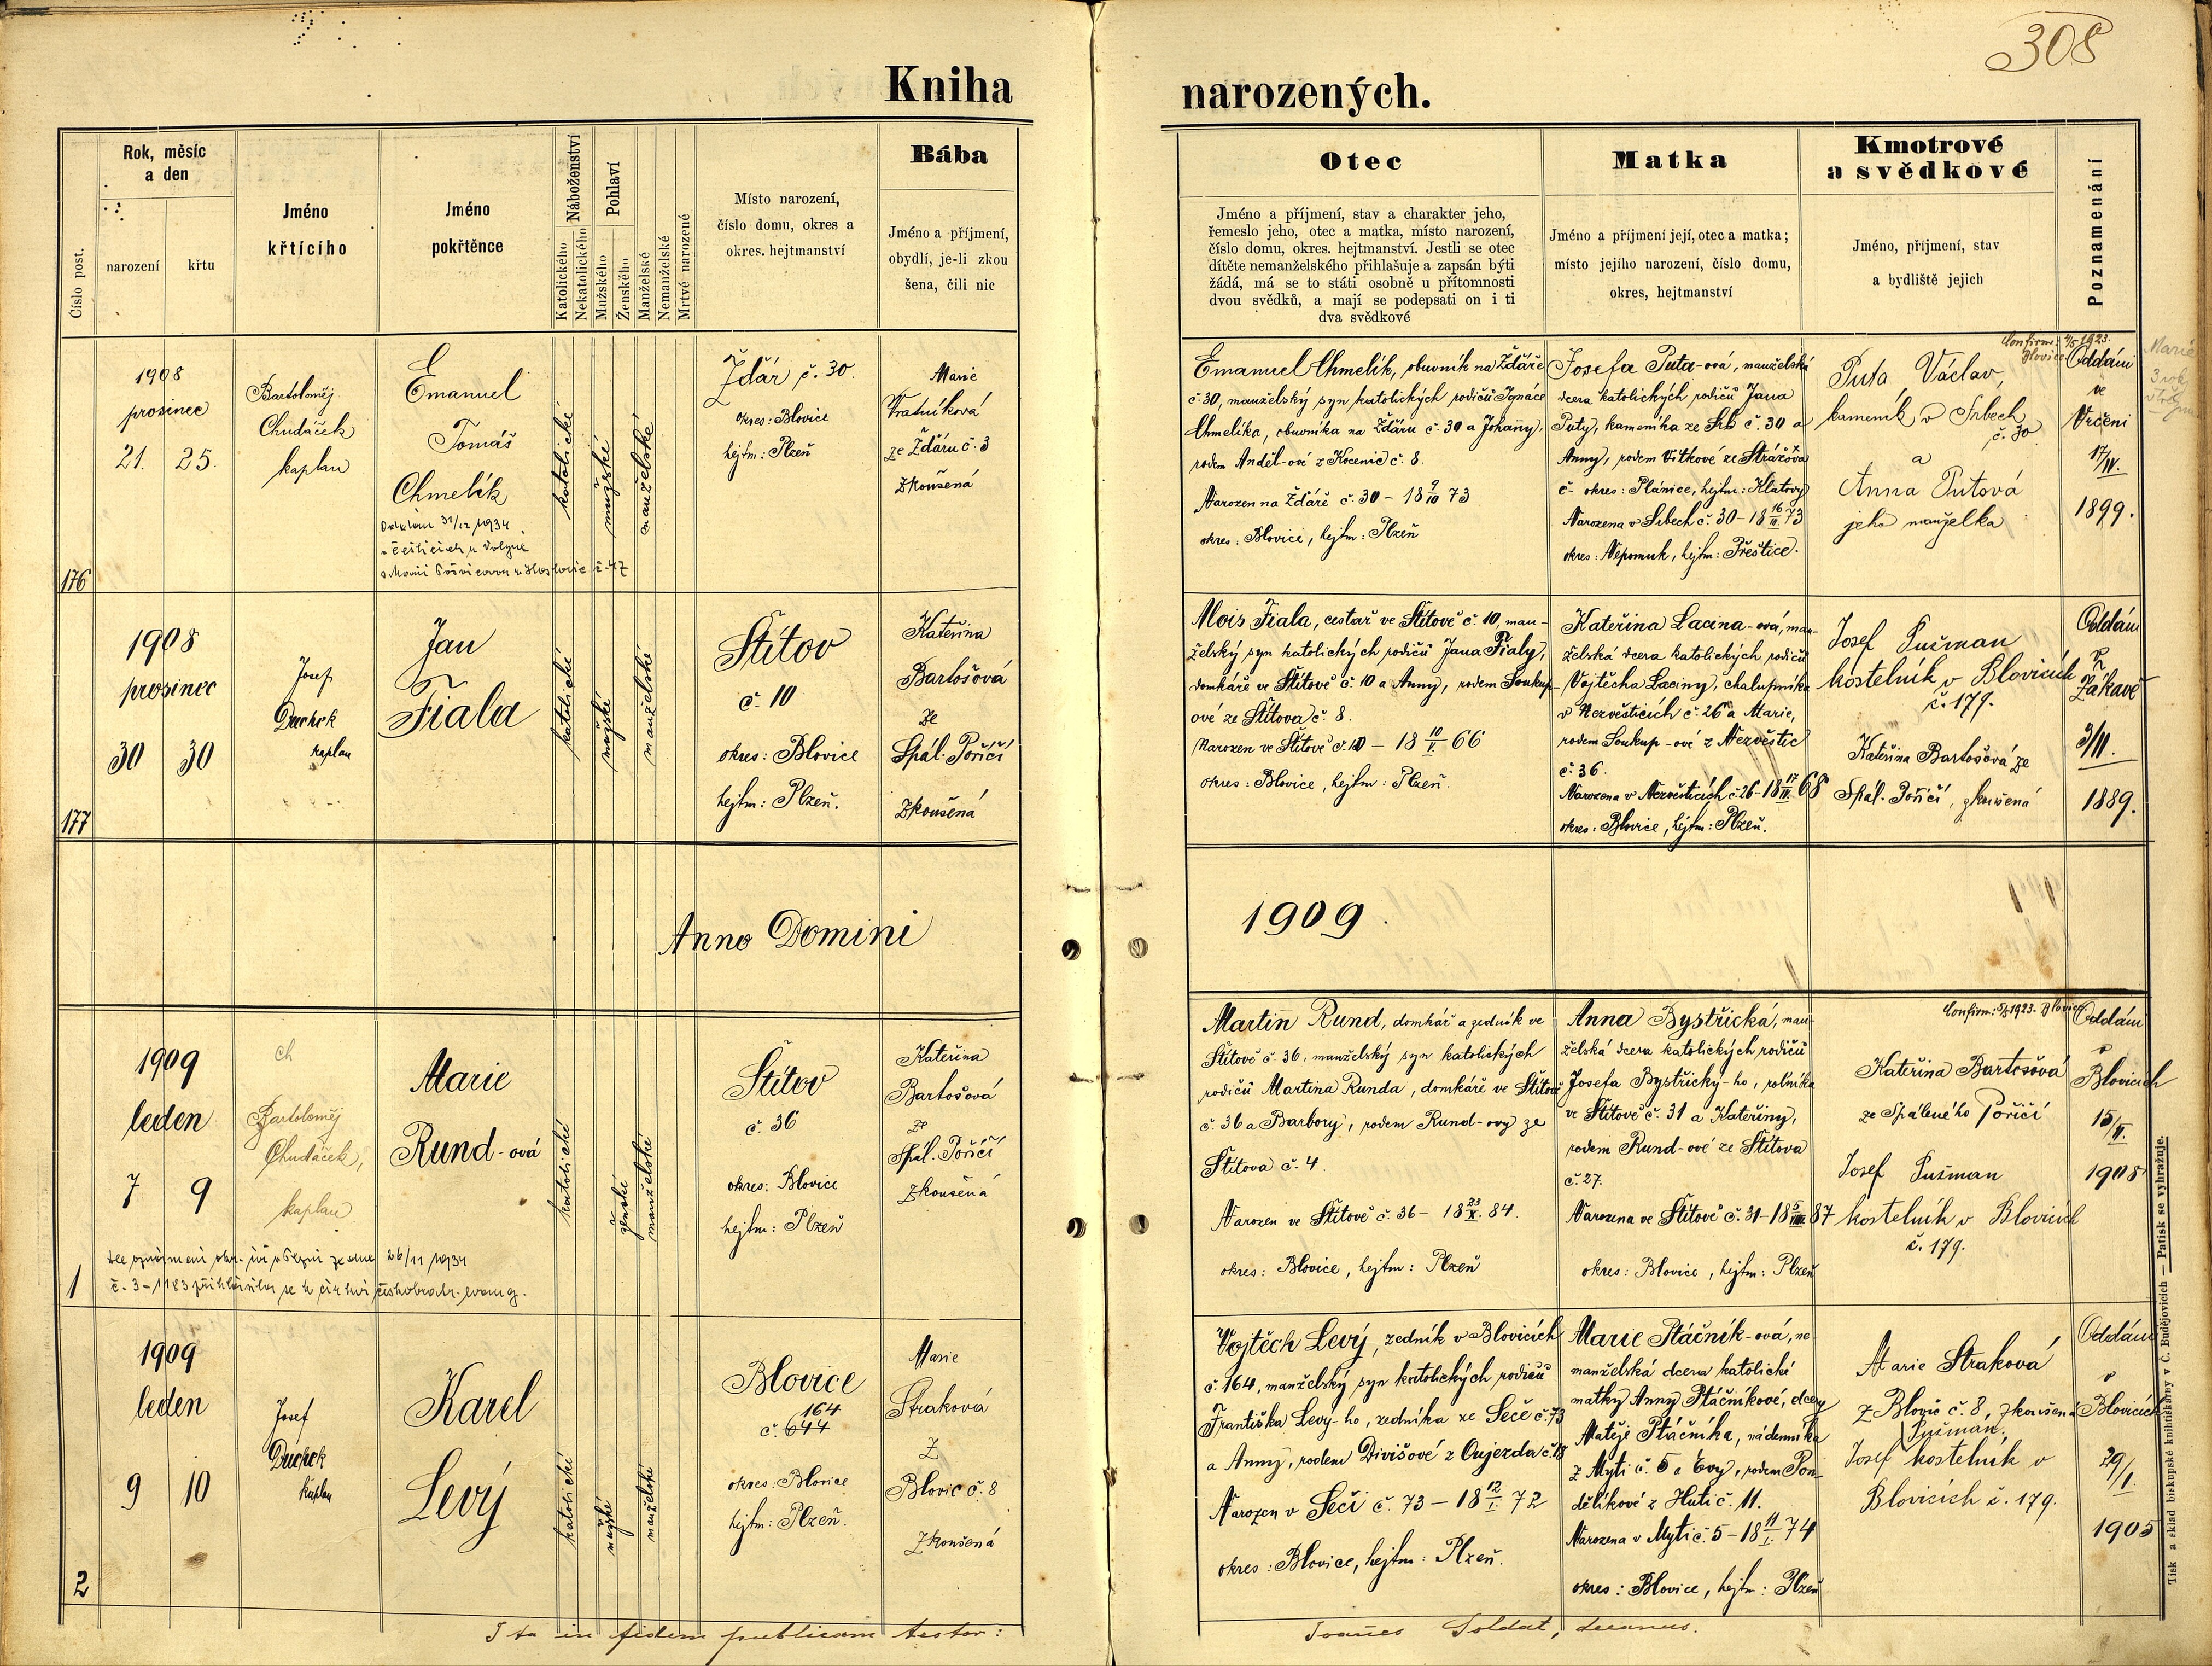 308
Kniha narozených.
Číslo post.
Rok, měsíc
a den
narození
křtu
Jméno
křtícího
Jméno
pokřtěnce
Náboženství
Katolického
Nekatolického
Pohlaví
Mužského
Ženského
Manželské
Nemanželské
Mrtvě narozené
Místo narození,
číslo domu, okres a
okres. hejtmanství
Bába
Jméno a příjmení,
obydlí, je-li zkou
šena, čili nic
Otec
Jméno a příjmení, stav a charakter jeho,
řemeslo jeho, otec a matka, místo narození,
číslo domu, okres. hejtmanství. Jestli se otec
dítěte nemanželského přihlašuje a zapsán býti
žádá, má se to státi osobně u přítomnosti
dvou svědků, a mají se podepsati on i ti
dva svědkové
Matka
Jméno a příjmení její, otec a matka;
místo jejího narození, číslo domu,
okres, hejtmanství
Kmotrové
a svědkové
Jméno, příjmení, stav
a bydliště jejich
Poznamenání
176
1908
prosinec
21. 25.
Bartoloměj
Chudáček
kaplan
Emanuel
Tomáš
Chmelík
Oddán 31/12 1934
v Češticích u Volyně
katolické
mužské
manželské
Ždár č. 30.
okres: Blovice
hejtm: Plzeň
Marie
Vratníková
ze Ždáru č. 3
zkoušená
Emanuel Chmelík, obuvník na Ždáře
č 30, manželský syn katolických rodičů Ignáce
Chmelíka, obuvníka na Ždáru č. 30 a Johany,
rodem Anděl-ové z Kocenic č. 8.
Narozen na Ždáře č 30 - 18 9/10 73
okres: Blovice, hejtm: Plzeň
Josefa Puta-ová, manželská
dcera katolických rodičů Jana
Puty, kameníka ze Srb č. 30 a
Anny, rodem Vítkové ze Strážova
č - okres: Plánice, hejtm: Klatovy
Narozena v Srbech č. 30 - 18 16/II. 73
okres: Nepomuk, hejtm: Přeštice.
Confirm. 1923.
Blovice
Puta Václav,
kameník v Srbech
č. 30
a
Anna Putová
jeho manželka
Oddáni
ve
Vrčeni
17/IV.
1899.
Marie
3 roky
177
1908
prosinec
30 30
Josef
Duchek
kaplan
Jan
Fiala
katolické
mužské
manželské
Štítov
č. 10
okres: Blovice
hejtm: Plzeň.
Kateřina
Bartošová
ze
Spál. Poříčí
zkoušená
Alois Fiala, cestář ve Štítově č. 10, man-
želský syn katolických rodičů Jana Fialy,
domkáře ve Štítově č. 10 a Anny, rodem Soukup-
ové ze Štítova č. 8.
Narozen ve Štítově č. 10 - 18 10/V. 66
okres: Blovice, hejtm: Plzeň.
Kateřina Lacina-ová, man-
želská dcera katolických rodičů
Vojtěcha Laciny, chalupníka
v Nezvěsticích č. 26 a Marie,
rodem Soukup-ové z Nezvěstic
č. 36.
Narozena v Nezvěsticích č. 26 - 18 17/IV. 68
okres: Blovice, hejtm: Plzeň.
Josef Sušman
kostelník v Blovicích
č. 179.
Kateřina Bartošová ze
Spál. Poříčí, zkoušená
Oddáni
v
Žákavě
3/II.
1889.
Anno Domini 1909.
1
1909
leden
7 9
ch
Bartoloměj
Chudáček,
kaplan
Marie
Rund-ová
26/11 1934
č. 3-1183 přihlásila se k církvi českobratr. evang.
katolické
ženské
manželské
Štítov
č. 36
okres: Blovice
hejtm: Plzeň
Kateřina
Bartošová
ze
Spál. Poříčí
zkoušená
Martin Rund, domkář a zedník ve
Štítově č. 36, manželský syn katolických
rodičů Martina Runda, domkáře ve Štítově
č. 36 a Barbory, rodem Rund-ovy ze
Štítova č. 4.
Narozen ve Štítově č. 36 - 18 23/X. 84.
okres: Blovice, hejtm: Plzeň
Anna Bystřická, man-
želská dcera katolických rodičů
Josefa Bystřický-ho, rolníka
ve Štítově č. 31 a Kateřiny,
rodem Rund-ové ze Štítova
č. 27.
Narozena ve Štítově č. 31 - 18 5/VIII. 87
okres: Blovice, hejtm: Plzeň
Confirm: 1923. Blovice
Kateřina Bartošová
ze Spáleného Poříčí
Josef Sušman
kostelník v Blovicích
č. 179.
Oddáni
v
Blovicích
15/II.
1908
2
1909
leden
9 10
Josef
Duchek
kaplan
Karel
Levý
katolické
mužské
manželské
Blovice
164
č. 644
okres: Blovice
hejtm: Plzeň.
Marie
Straková
z
Blovic č. 8
zkoušená
Vojtěch Levý, zedník v Blovicích
č. 164, manželský syn katolických rodičů
Františka Levý-ho, zedníka ze Seče č. 73
a Anny, rodem Divišové z Oujezda č. 18
Narozen v Seči č. 73 - 18 12/I. 72
okres: Blovice, hejtm: Plzeň.
Marie Ptáčník-ová, ne
manželská dcera katolické
matky Anny Ptáčníkové, dcery
Matěje Ptáčníka, nádenníka
z Mýti č. 5 a Evy, rodem Pon-
dělíkové z Hutí č. 11.
Narozena v Mýti č. 5 - 18 11/I. 74
okres: Blovice, hejtm: Plzeň
Marie Straková
z Blovic č. 8, zkoušená
Sušman,
Josef kostelník v
Blovicích č. 179.
Oddáni
v
Blovicích
29/I.
1905
Ita in fidem publicam testor: Joannes Soldat, decanus.
Tisk a sklad biskupské knihtiskárny v Č. Budějovicích — Patisk se vyhražuje.